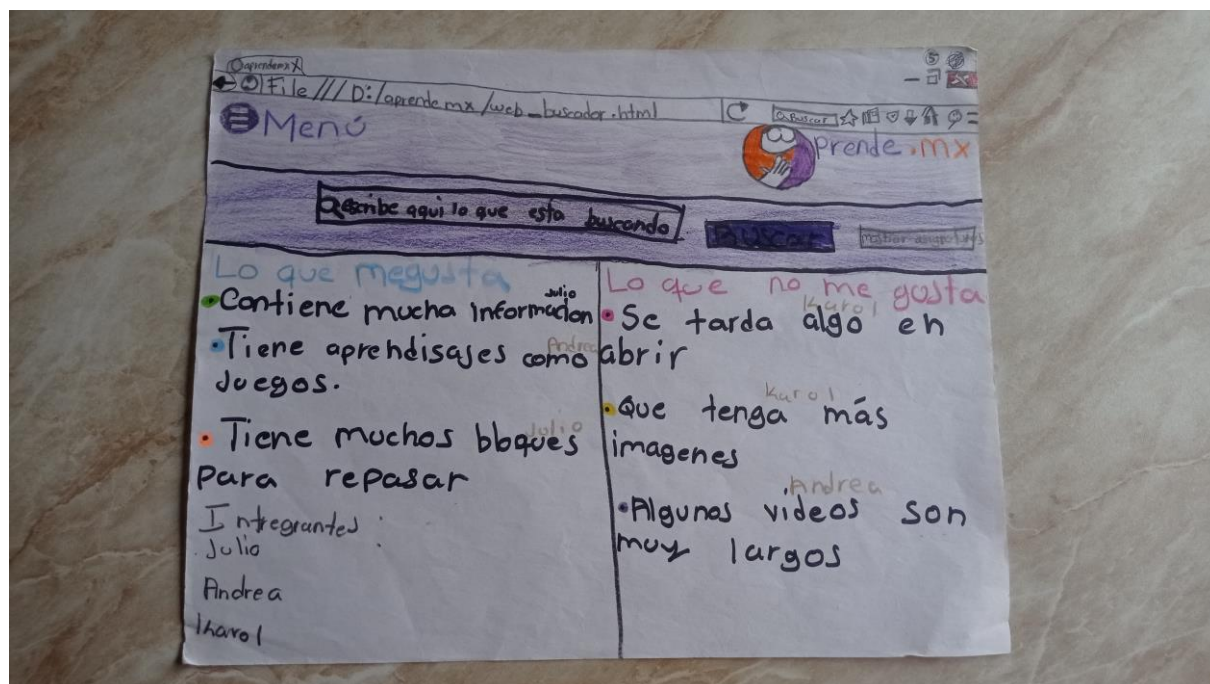 aprendemx X
File /// D:/aprende.mx/web_buscador.html
Buscar
Menú
prende.mx
escribe aqui lo que esta buscando
Buscar
mostrar
Lo que megusta
Julio
• Contiene mucha informacion
Andrea
• Tiene aprehdisajes como
Juegos.
Julio
• Tiene muchos bloques
para repasar
Integrantes:
Julio
Andrea
Kharol
Lo que no me gusta
Karol
• Se tarda algo en
abrir
Karol
• Que tenga más
imagenes
Andrea
• Algunos videos son
muy largos